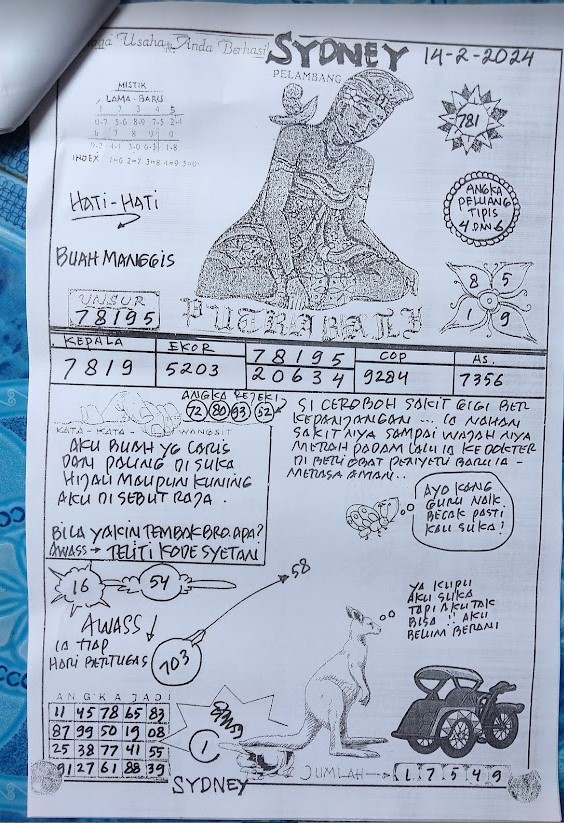 Usaha Anda Berhasil
SYDNEY
14-2-2024
PELAMBANG
MISTIK
LAMA - BARU
INDEX
781
HATI-HATI
ANGKA
PELUANG
TIPIS
4 DAN 6
BUAH MANGGIS
8 5
1 9
UNSUR
78195
PUTRA BALI
KEPALA
EKOR
78195
COP
AS.
7819
5203
20634
9284
7356
ANGKA REJEKI
72 80 93 52
KATA - KATA WANGSIT
AKU BUAH YG LARIS
DAN PALING DI SUKA
HIJAU MAUPUN KUNING
AKU DI SEBUT RAJA.
BILA YAKIN TEMBAK BRO. APA?
AWASS → TELITI KODE SYETAN
SI CEROBOH SAKIT GIGI BER
KEPANJANGAN ... IA NAHAN
SAKITNYA SAMPAI WAJAHNYA
MERAH PADAM LALU IA KE DOKTER
DI BERI OBAT PENYERI BARU IA -
MERASA AMAN..
AYO KANG
GURU NAIK
BECAK PASTI
KAU SUKA!
16
54
58
AWASS
IA TIAP
HARI BERTUGAS
703
YA KUPU
AKU SUKA
TAPI AKU TAK
BISA !! AKU
BELUM BERANI
ANGKA JADI
11 45 78 65 83
87 99 50 19 08
25 38 77 41 55
91 27 61 88 39
1
SYDNEY
JUMLAH → 17549